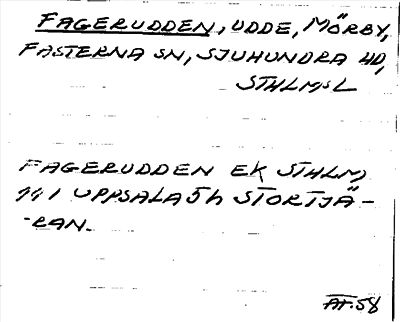 FAGERUDDEN, UDDE, MÖRBY,
FASTERNA SN, SJUHUNDRA HD,
STHLMS L
FAGERUDDEN EK STHLM,
141 UPPSALA 5h STORTJÄ-
-RAN.
AF.58